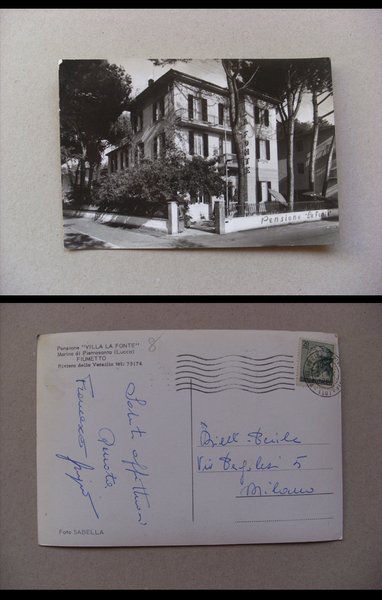 FONTE
Pensione "La Fonte"
Pensione "VILLA LA FONTE"
Marina di Pietrasanta (Lucca)
FIUMETTO
Riviera della Versilia tel: 73174
8
Saluti affettuosi
Francesco
Via Pergolesi 5
Milano
Foto SABELLA